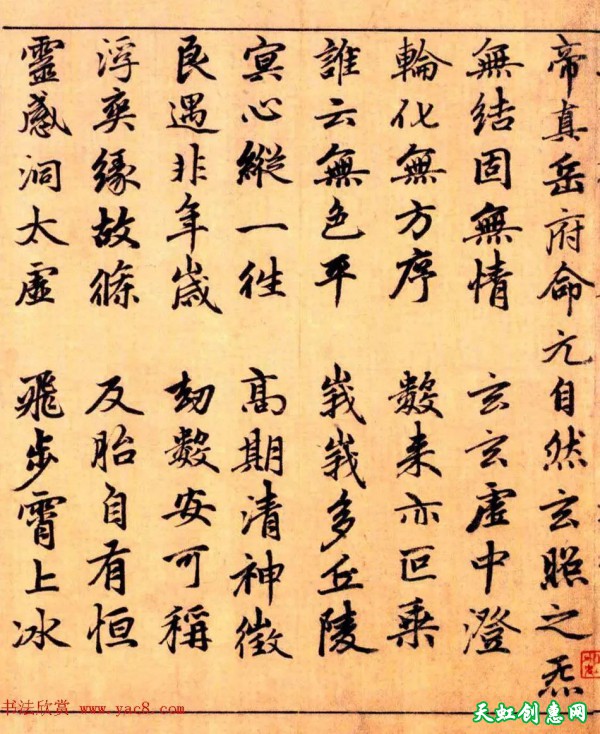 帝真岳府命元自然玄照之炁
無結固無情 玄玄虛中澄
輪化無方序 數来亦叵乗
誰云無色平 峩峩多丘陵
寘心縱一徃 高期清神徴
良遇非年歲 劫數安可稱
浮爽緣故條 反胎自有恒
靈感洞太虛 飛步霄上冰
书法欣赏 www.yac8.com
天虹创意网